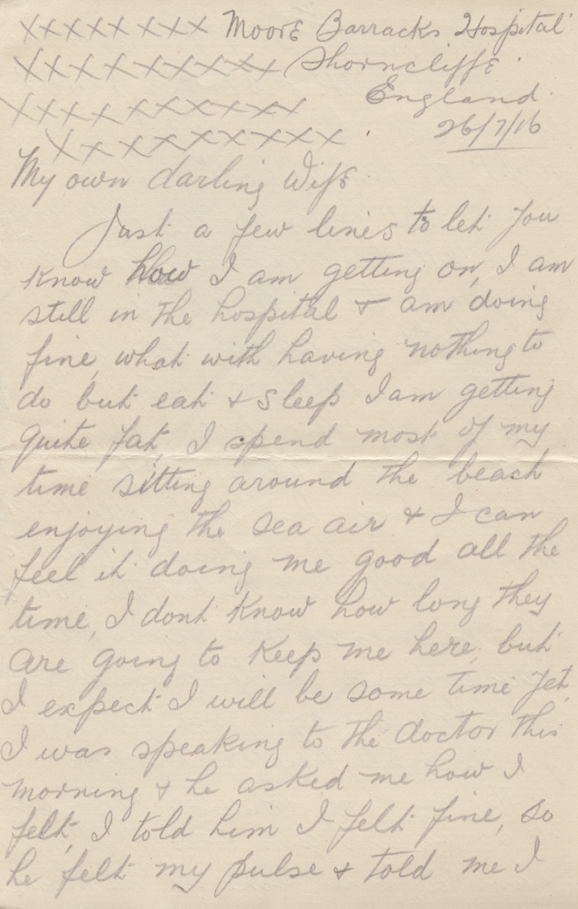 xxxxxxx Moore Barracks Hospital
xxxxxxxxx Shorncliffe.
xxxxxxxxxx England.
xxxxxxxxxx. 26/7/16
My own darling Wife.
Just a few lines to let you
know how I am getting on, I am
still in the hospital & am doing
fine, what with having nothing to
do but eat & sleep I am getting
quite fat, I spend most of my
time sitting around the beach
enjoying the sea air & I can
feel it doing me good all the
time, I dont know how long they
are going to keep me here, but
I expect I will be some time yet,
I was speaking to the doctor this
morning & he asked me how I
felt, I told him I felt fine, so
he felt my pulse & told me I